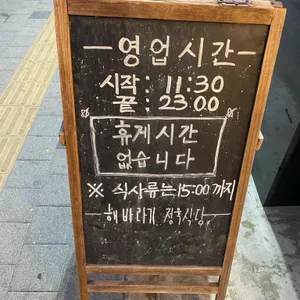 영업시간
시작: 11:30
끝: 23:00
휴게시간
없습니다
※ 식사류는 15:00 까지
해바라기 정육식당